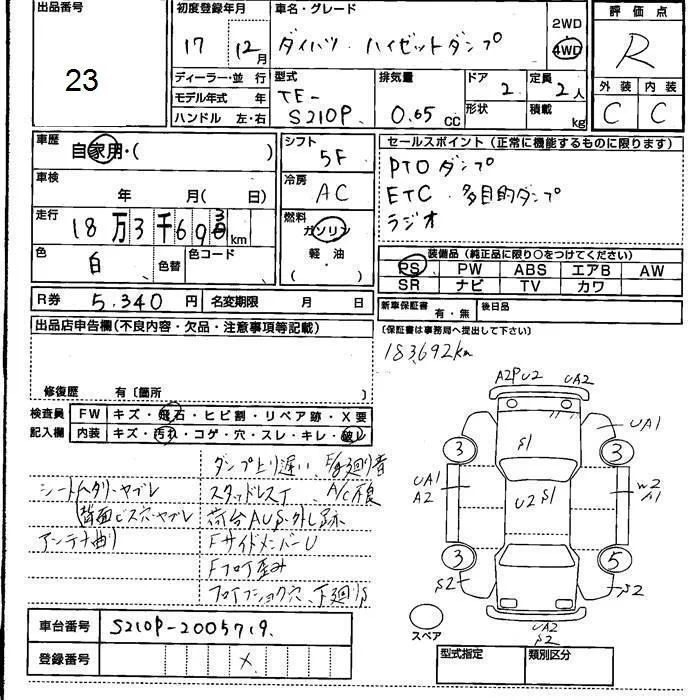 出品番号
23
初度登録年月
17 12月
車名・グレード
ダイハツ ハイゼットダンプ
2WD
4WD
評価点
R
外装 内装
C C
ディーラー・並行
モデル年式 年
ハンドル 左・右
型式
TE-
S210P
排気量
0.65 CC
ドア 2
形状
定員 2人
積載 kg
車歴
自家用・( )
車検
年 月( 日)
走行
18万3千69 km
色
白 色替
色コード
シフト
5F
冷房
AC
燃料
ガソリン
軽油
( ・ )
セールスポイント(正常に機能するものに限ります)
PTOダンプ
ETC 多目的ダンプ
ラジオ
装備品(純正品に限り○をつけてください)
PS PW ABS エアB AW
SR ナビ TV カワ
R券 5,340円 名変期限 月 日
新車保証書 有・無 後日品
(保証書は事務局へ提出して下さい)
出品店申告欄(不良内容・欠品・注意事項等記載)
183,692km
修復歴 有〔箇所 〕
検査員 FW キズ・飛石・ヒビ割・リペア跡・X要
記入欄 内装 キズ・汚れ・コゲ・穴・スレ・キレ・破レ
ダンプ上り遅い
シートヘタリ・ヤブレ スタッドレスT A/C不良
背面ビス穴・ヤブレ 荷台AUS・外し跡
アンテナ曲り FサイドメンバーU
Fフロア歪み
フロアプッシュ穴、下廻りS
A2P U2 UA2
S1 UA1
3 3
UA1
A2
U2 S1
W2
S1
3 5
S2 S2
スペア
UA2
S2
車台番号 S210P-2005719
登録番号 X
型式指定 類別区分